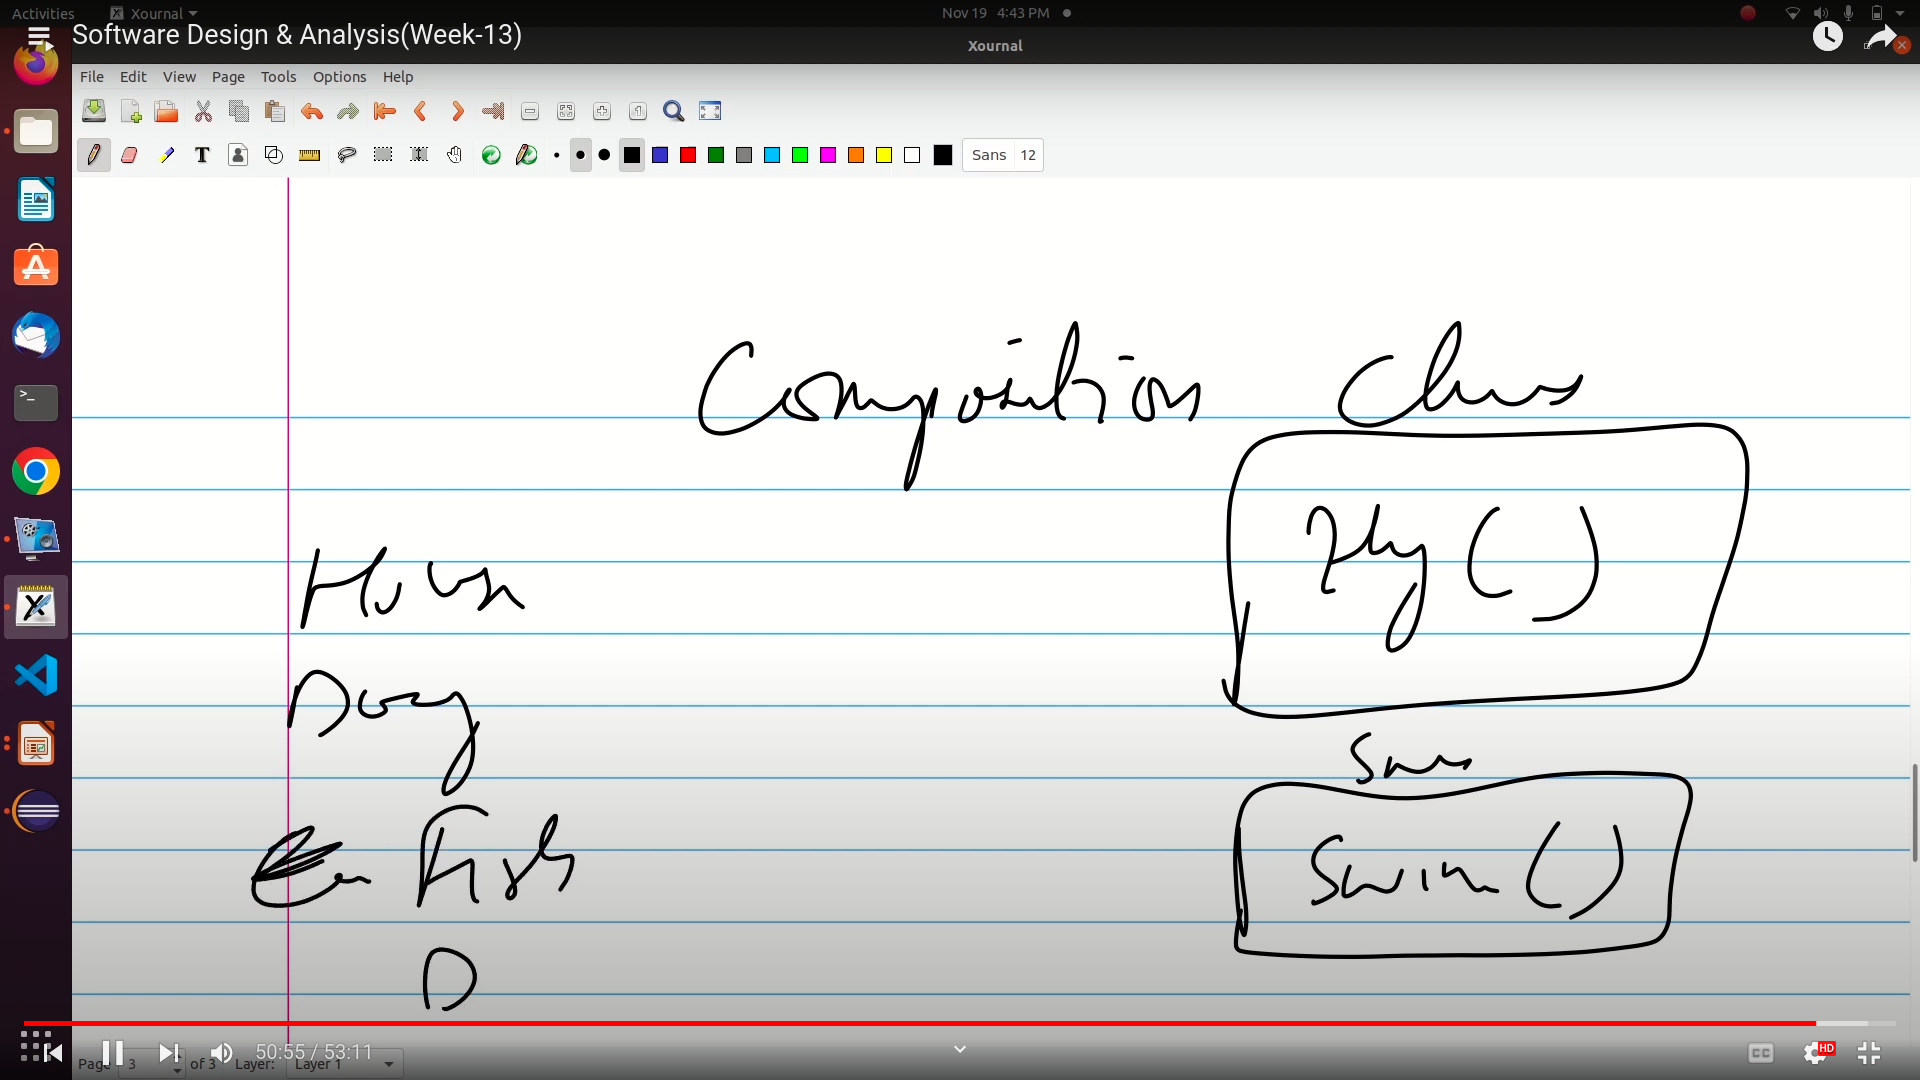 Activities Xournal Nov 19 4:43 PM
Software Design & Analysis(Week-13)
Xournal
File Edit View Page Tools Options Help
Sans 12
Composition Class
Fly ( )
Human
Dog
Swim
Fish
Swim ( )
D
50:55 / 53:11
CC HD
Page 3 of 3 Layer: Layer 1